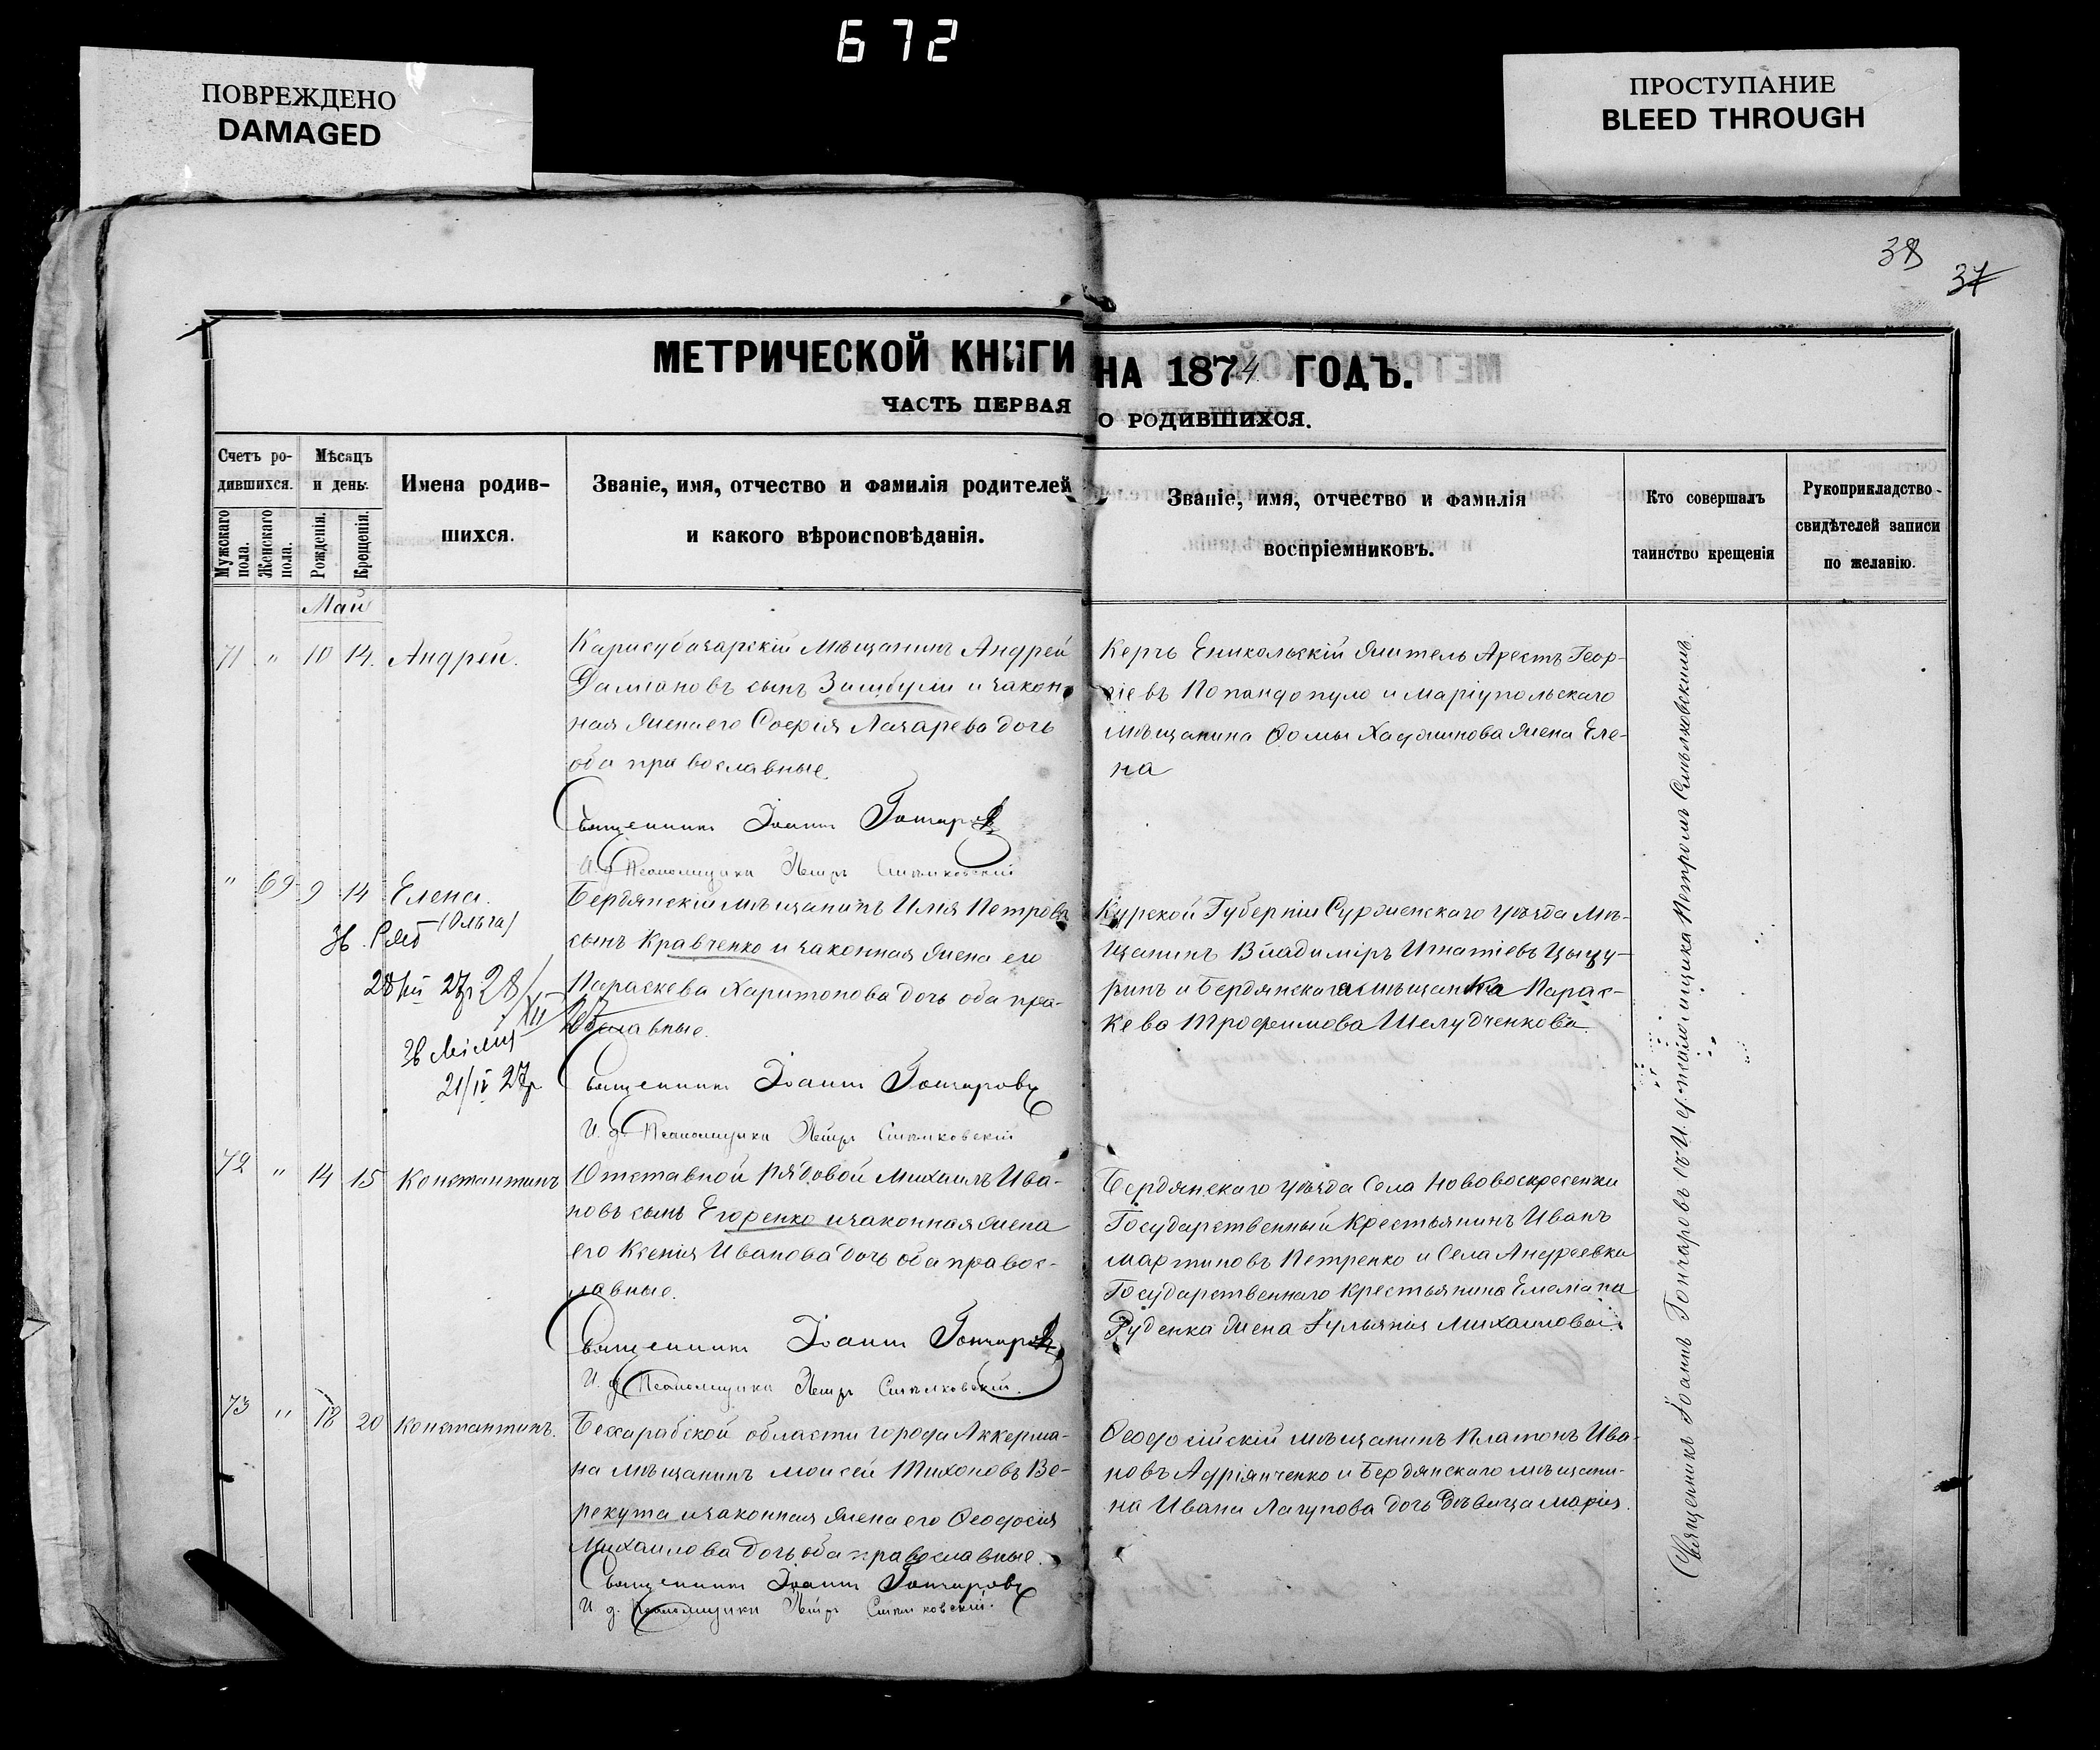 672
ПОВРЕЖДЕНО
DAMAGED
ПРОСТУПАНИЕ
BLEED THROUGH
38
37
МЕТРИЧЕСКОЙ КНИГИ НА 1874 ГОДЪ.
ЧАСТЬ ПЕРВАЯ О РОДИВШИХСЯ.
Счетъ ро-
дившихся.
Мужскаго
пола.
Женскаго
пола.
Мѣсяцъ
и день.
Рожденія.
Крещенія.
Имена родив-
шихся.
Званіе, имя, отчество и фамилія родителей
и какого вѣроисповѣданія.
Званіе, имя, отчество и фамилія
воспріемниковъ.
Кто совершалъ
таинство крещенія
Рукоприкладство
свидѣтелей записи
по желанію.
Май
71 " 10 14. Андрей.
Карасубазарскій мѣщанинъ Андрей
Даміановъ сынъ и закон-
ная жена его Софія Лазарева дочь
оба православные.
Священникъ Іоаннъ Гончаровъ
И. д. Псаломщика Петръ
Керчь Еникольскій житель Арестъ Геор-
гіевъ Попандопуло и Маріупольскаго
мѣщанина Фомы Хаджинова жена Еле-
на
" 69 9 14 Елена.
(Ольга)
28/III 27р 28/XII
21/IV 27р
Бердянскій мѣщанинъ Илія Петровъ
сынъ Кравченко и законная жена его
Параскева Харитонова дочь оба пра-
вославные.
Священникъ Іоаннъ Гончаровъ
И. д. Псаломщика Петръ
Курской Губерніи Судженскаго уѣзда Мѣ-
щанинъ Владиміръ Игнатіевъ
и Бердянская мѣщанка Парас-
кева Трофимова Шелудченкова
72 " 14 15 Константинъ
Отставной рядовой Михаилъ Ива-
новъ сынъ Егоренко и законная жена
его Ксенія Иванова дочь оба правос-
лавные.
Священникъ Іоаннъ Гончаровъ
И. д. Псаломщика Петръ
Бердянскаго уѣзда Села Нововоскресенки
Государственный крестьянинъ Иванъ
Мартиновъ Петренко и Села Андреевки
Государственнаго крестьянина Емеліана
Руденка жена Гульянія Михаилова.
73 " 18 20 Константинъ.
Бессарабской области города Аккерма-
на мѣщанинъ Моисей Тихоновъ Ве-
рекута и законная жена его Феодосія
Михаилова дочь оба православные.
Священникъ Іоаннъ Гончаровъ
И. д. Псаломщика Петръ
Феодосійскій мѣщанинъ Платонъ Ива-
новъ Адріянченко и Бердянскаго мѣщани-
на Ивана Лагунова дочь Дѣвица Марія.
Священникъ Іоаннъ Гончаровъ съ И. д. псаломщика Петромъ